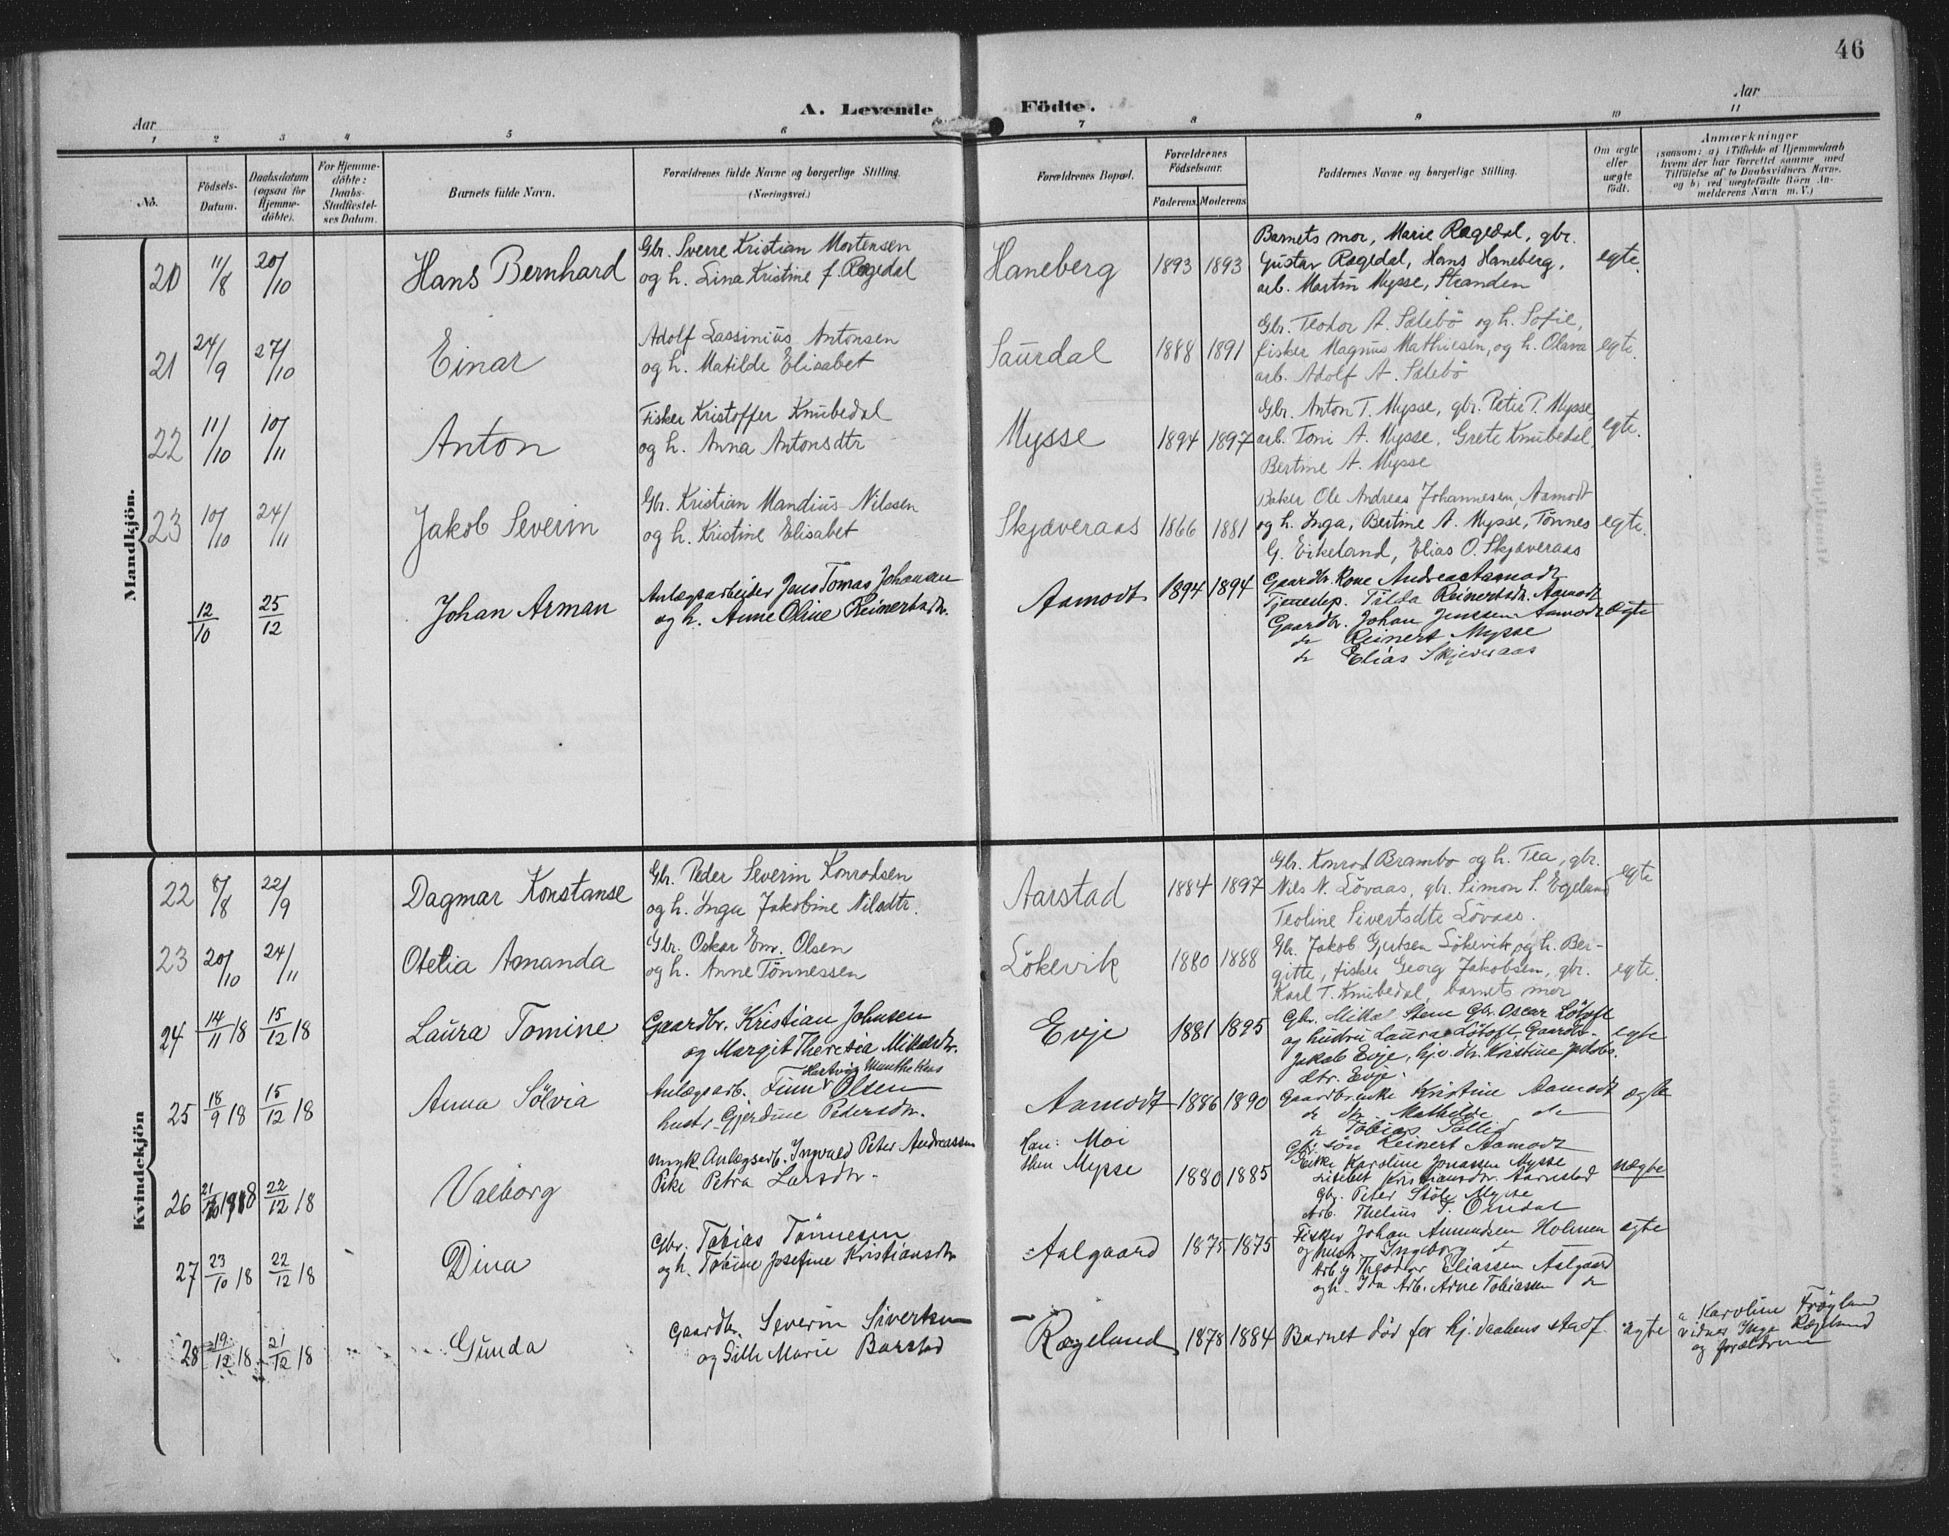 46
A. Levende Födte.
Aar
Aar
1 2 3 4 5 6 7 8 9 10 11
No.
Födsels-Datum.
Daabsdatum (ogsaa for Hjemme-döbte).
For Hjemme-döbte: Daabs-Stadfæstel-ses Datum.
Barnets fulde Navn.
Forældrenes fulde Navne og borgerlige Stilling.
(Næringsvei.)
Forældrenes Bopæl.
Forældrenes Födselsaar.
Faderens. Moderens.
Faddernes Navne og borgerlige Stilling.
Om ægte eller uægte födt.
Anmærkninger
(saasom: a) i Tilfælde af Hjemmedaab hvem der har forrettet samme, med Tilföielse af to Daabsvidners Navne, og b) ved uægtefödte Börn An-melderens Navn m. V.)
Mandkjön.
20 11/8 20/10 Hans Bernhard
Gbr. Sverre Kristian Mortensen
og h. Lina Kristine f. Rægedal
Haneberg 1893 1893
Barnets mor, Marie Rægedal, gbr.
Gustav Rægedal, Hans Haneberg,
arb. Martin Mysse, Stranden
egte.
21 24/9 27/10 Einar
Adolf Lassinius Antonsen
og h. Matilde Elisabet
Saurdal 1888 1891
Gbr. Teodor A. Sælebö og h. Sofie,
fisker Magnus Mathiesen, og h. Olava
arb. Adolf A. Sælebö
egte.
22 11/10 10/11 Anton
Fisker Kristoffer Knubedal
og h. Anna Antonsdtr
Mysse 1894 1897
Gbr. Anton T. Mysse, gbr. Peter P. Mysse
arb. Toni A. Mysse, Grete Knubedal,
Bertine A. Mysse
egte.
23 10/10 24/11 Jakob Severin
Gbr. Kristian Mandius Nilssen
og h. Kristine Elisabet
Skjæveraas 1866 1881
Baker Ole Andreas Johannesen, Aamodt
og h. Inga, Bertine A. Mysse, Tönnes
G. Eikeland, Elias O. Skjæveraas
egte.
12/10 25/12 Johan Arman
Anlægsarbeider Jens Tomas Johansen
og h. Anne Oline Reinertsdtr.
Aamodt 1894 1894
Gaardbr. Kone Andrea Aamodt
Tjenestep. Tilda Reinertsdtr. Aamodt
Gaardbr. Johan Jenssen Aamodt
do Reinert Mysse
do Elias Skjeveraas
Ægte
Kvindekjön
22 8/8 22/9 Dagmar Konstanse
Gbr. Peder Severin Konradsen
og h. Inga Jakobine Nilsdtr.
Aarstad 1884 1897
Gbr. Konrad Brambo og h. Tea, gbr.
Nils N. Lövaas, gbr. Simon S. Egeland
Teoline Sivertsdtr Lövaas.
egte
23 20/10 24/11 Otelia Amanda
Gbr. Oskar Em. Olsen
og h. Anne Tönnessen
Lökevik 1880 1888
Gbr. Jakob Gjertsen Lökevik og h. Ber-
gitte, fisker Georg Jakobsen, gbr.
Karl T. Knubedal, barnets mor
egte.
24 14/11 18 15/12 18 Laura Tomine
Gaardbr. Kristian Johnsen
og Margit Theresea Mikalsdtr.
Evje 1881 1895
Gbr. Mikal Stene Gbr. Oscar Lötoft
og hustru Laura Lötoft, Gaardb.
Jakob Evje, hj.v. dtr. Kristine Jakobs.
dtr. Evje.
egte
25 18/9 18 15/12 18 Anna Sölvia
Hartvig Munthe Kaas
Anlægsarb. Finn Olsen
hustr. Gjerdine Pedersdtr.
Aamodt 1886 1890
Gaardbr.enke Kristine Aamodt
do dtr. Mathilde do
do Tobias Sollid
Gbr. søn Reinert Aamodt
ægte
26 21/10 1918 22/12 18 Valborg
Ungk. Anlægsarb. Ingvald Peter Andreassen
Pike Petra Larsdtr.
Han: Moi
Hun Mysse 1880 1885
Enke Karoline Jonassen Mysse
Lisebet Kristiansdtr. Aarrestad
Gbr. Peter Støle Mysse
Arb. Thelius T. Omdal
uægte
27 23/10 18 22/12 18 Dina
Gbr. Tobias Tönnesen
og h. Tobine Josefine Kristiansdtr
Aalgaard 1875 1875
Fisker Johan Amundsen Holmen
og hustr. Ingeborg do
Arb.g Theodor Eliassen Aalgaard
og h. Ida Arb. Arne Tobiassen do
ægte
28 19/12 18 21/12 18 Gunda
Gaardbr. Severin Sivertsen
og Sille Marie Barstad
Rægeland 1878 1884
Barnet död før hj. daabens stadf.
egte
a Karoline Frøyland
vidner Inga Rægeland
og forældrene